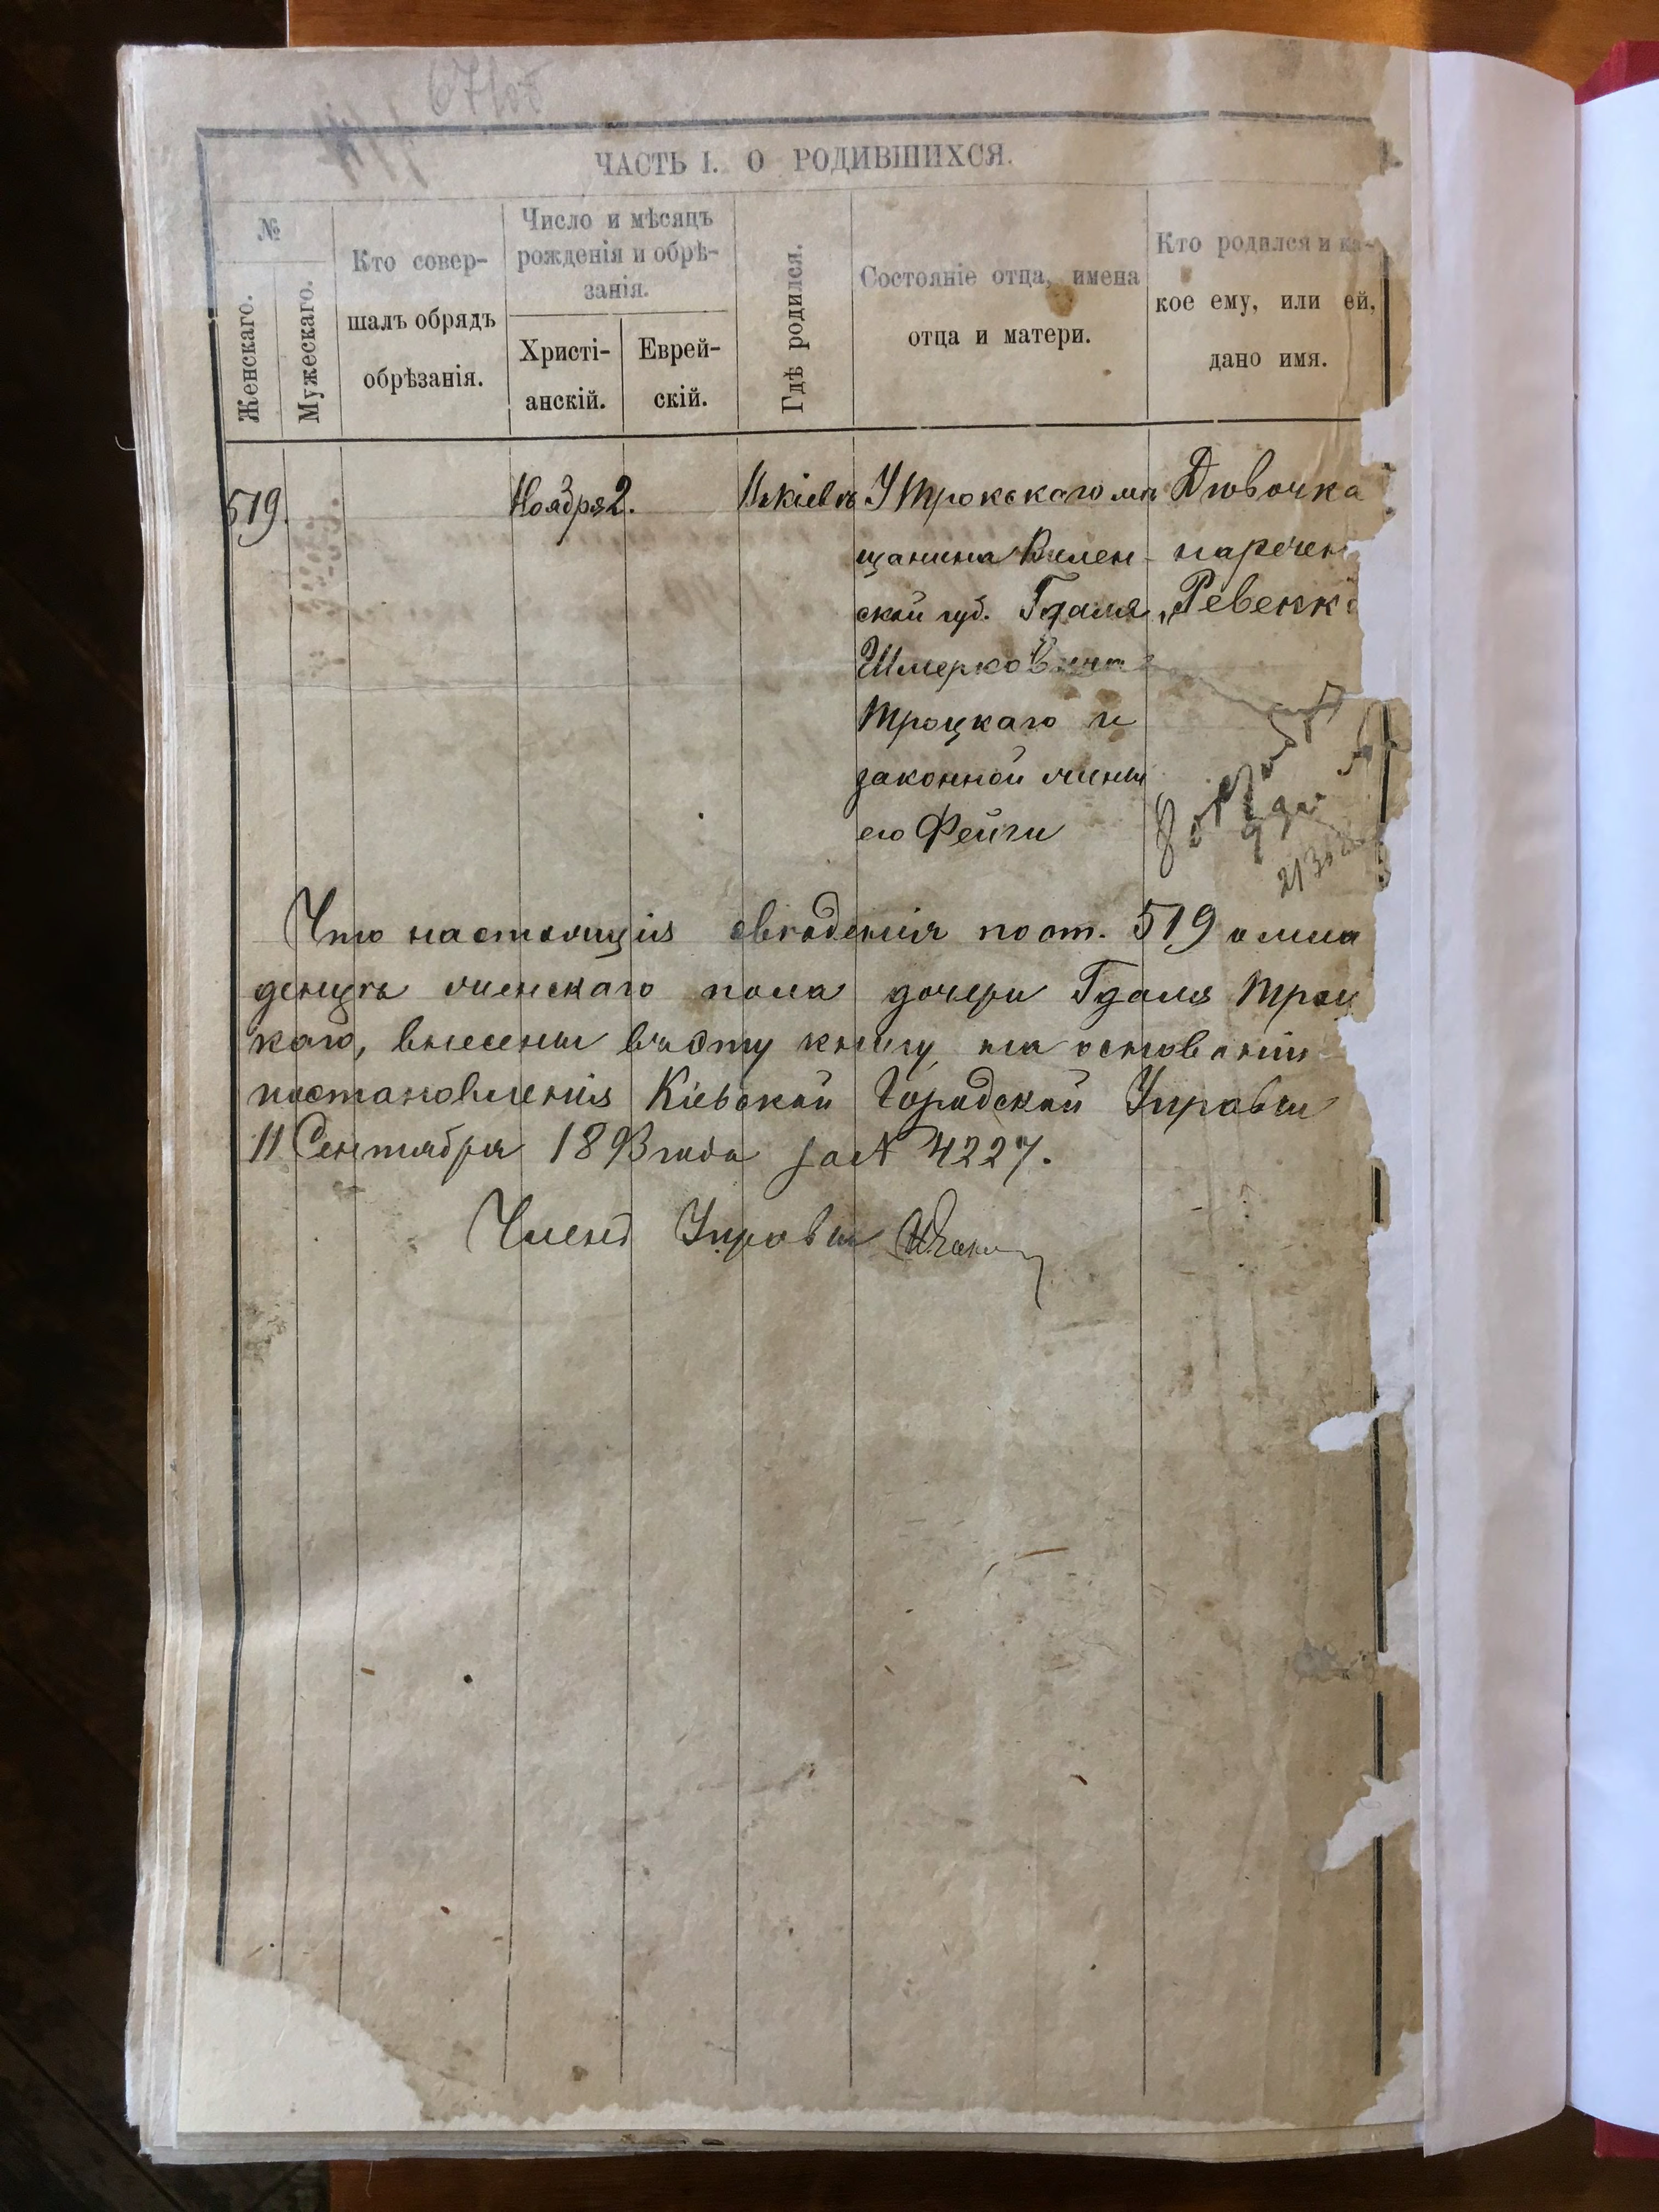 ЧАСТЬ I. О РОДИВШИХСЯ.
№
Женскаго.
Мужескаго.
Кто совер-
шалъ обрядъ
обрѣзанія.
Число и мѣсяцъ
рожденія и обрѣ-
занія.
Христі-
анскій.
Еврей-
скій.
Гдѣ родился.
Состояніе отца, имена
отца и матери.
Кто родился и ка-
кое ему, или ей,
дано имя.
519.
Ноября 2.
Въ Кіевѣ
У Трокскаго мѣ
щанина Вилен-
ской губ. Гдаля
Шмерковича
Троцкаго и
законной жены
его Фейги
Дѣвочка
наречен
„Ревекка
Что настоящія свѣдѣнія по ст. 519 о мла
денцѣ женскаго пола дочери Гдаля Троц
каго, внесены въ эту книгу на основаніи
постановленія Кіевской Городской Управы
11 Сентября 1893 года за № 4227.
Членъ Управы